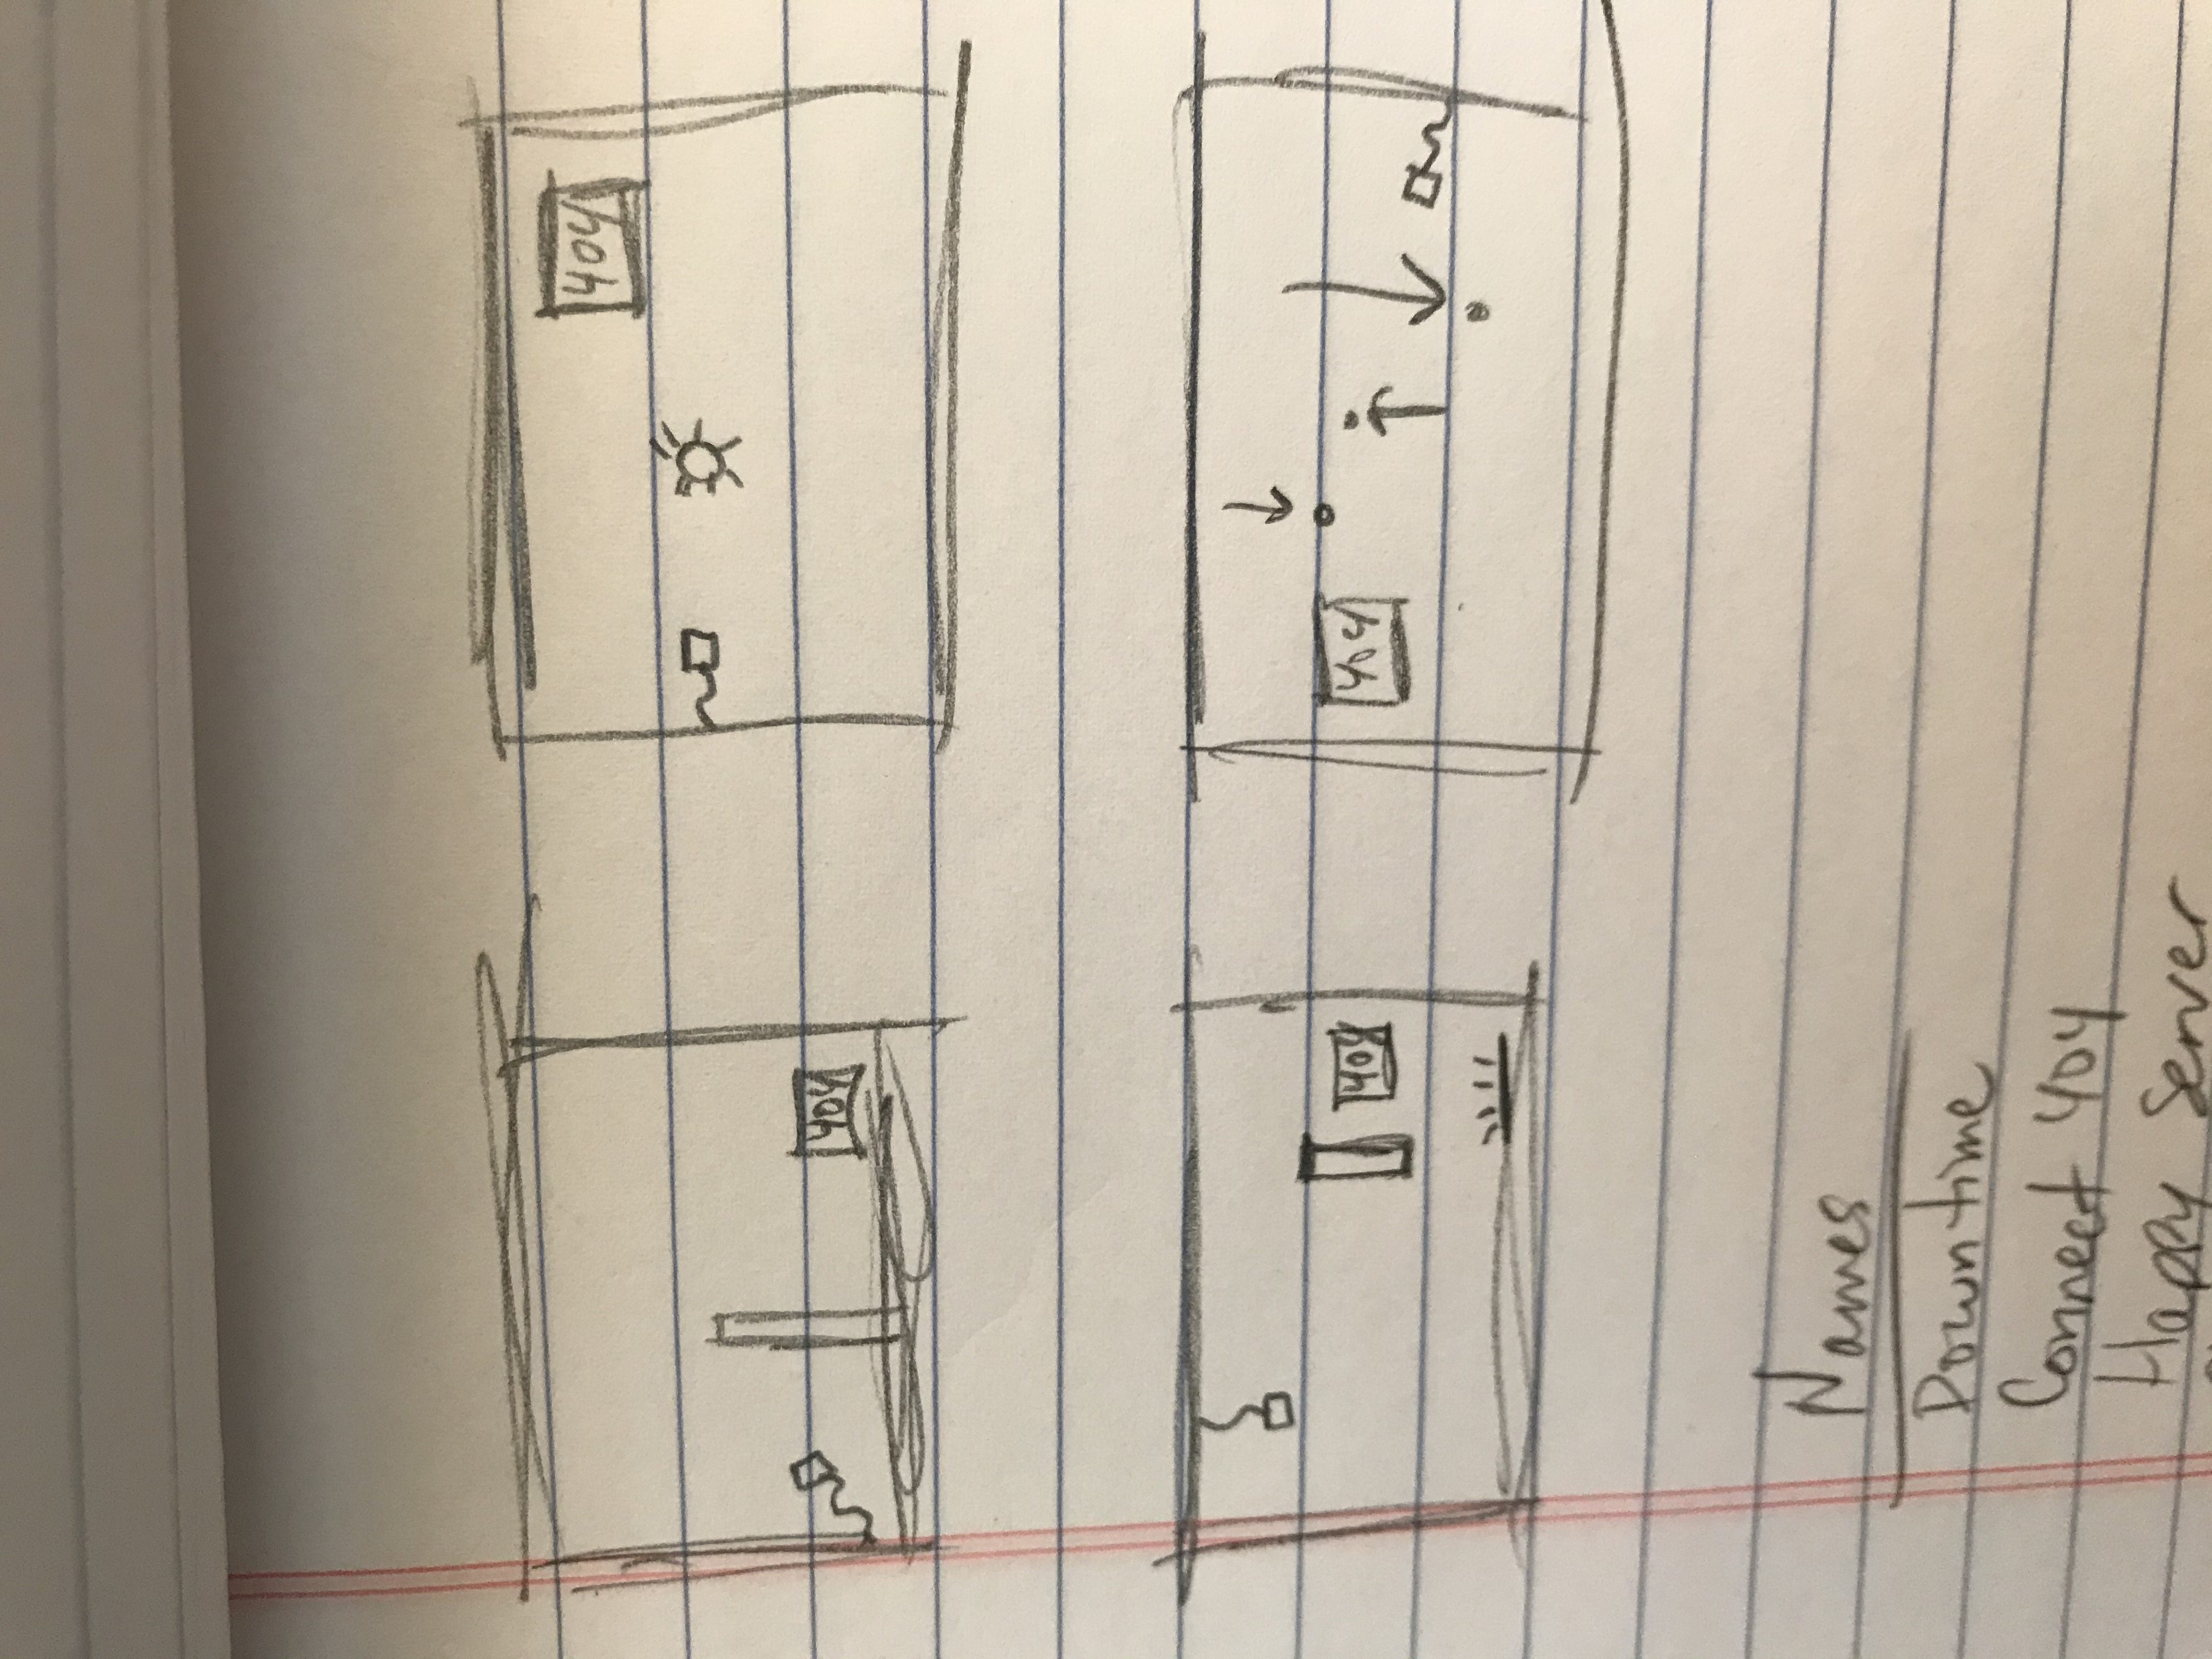 404
404
404
404
Names
Downtime
Connect 404
Happy Server